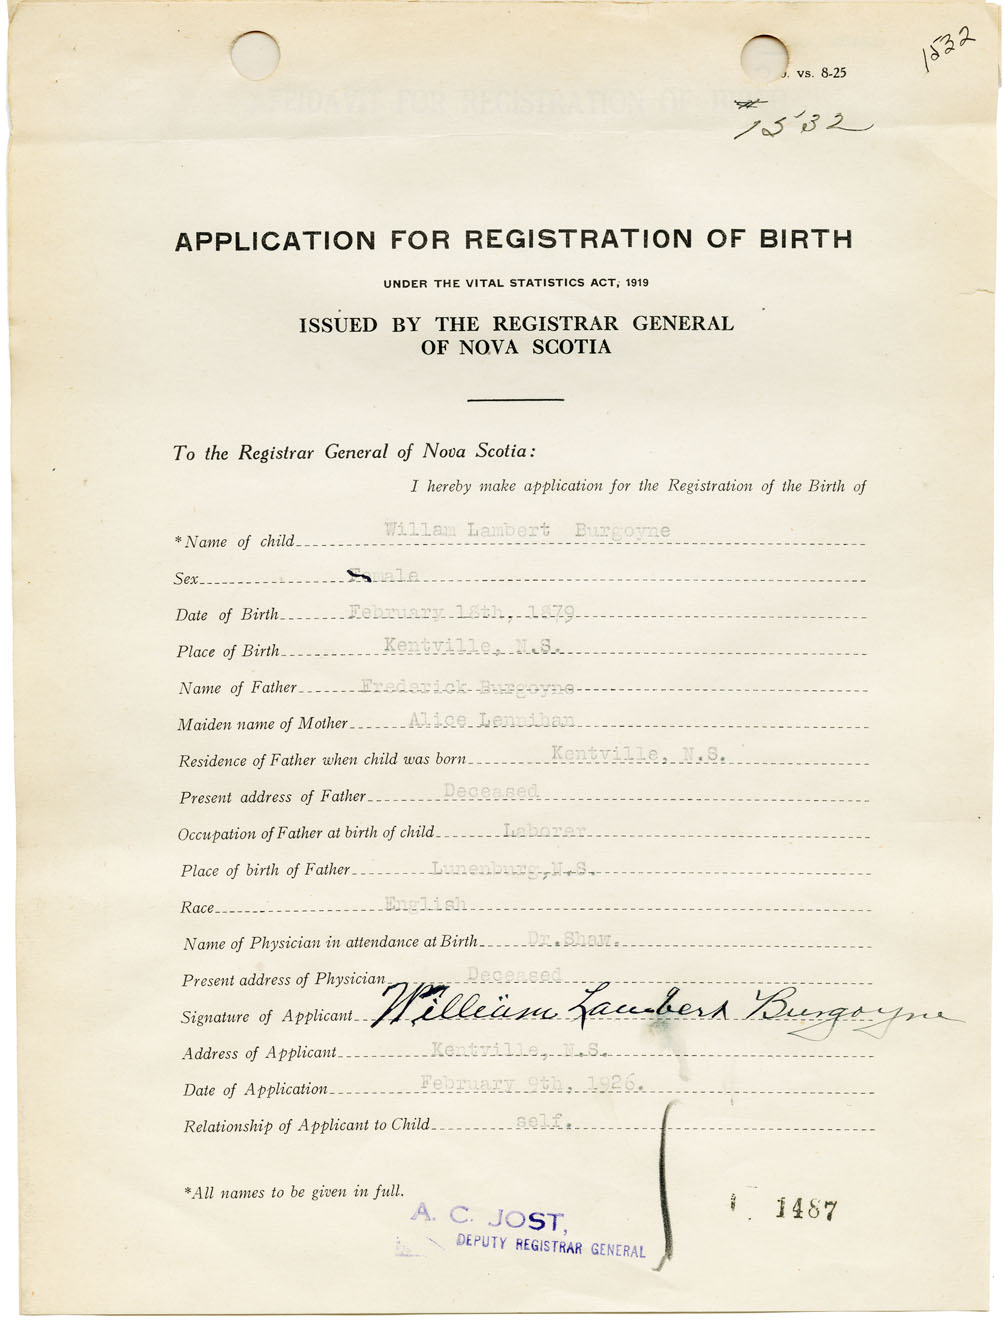 1532
vs. 8-25
# 1532
APPLICATION FOR REGISTRATION OF BIRTH
UNDER THE VITAL STATISTICS ACT, 1919
ISSUED BY THE REGISTRAR GENERAL
OF NOVA SCOTIA
To the Registrar General of Nova Scotia:
I hereby make application for the Registration of the Birth of
*Name of child Willam Lambert Burgoyne
Sex Female
Date of Birth February 18th, 1879
Place of Birth Kentville, N.S.
Name of Father Frederick Burgoyne
Maiden name of Mother Alice Lennihan
Residence of Father when child was born Kentville, N.S.
Present address of Father Deceased
Occupation of Father at birth of child Laborer
Place of birth of Father Lunenburg,N.S.
Race English
Name of Physician in attendance at Birth Dr.Shaw.
Present address of Physician Deceased
Signature of Applicant William Lambert Burgoyne
Address of Applicant Kentville, N.S.
Date of Application February 9th, 1926.
Relationship of Applicant to Child self.
*All names to be given in full.
1487
A. C. JOST,
DEPUTY REGISTRAR GENERAL